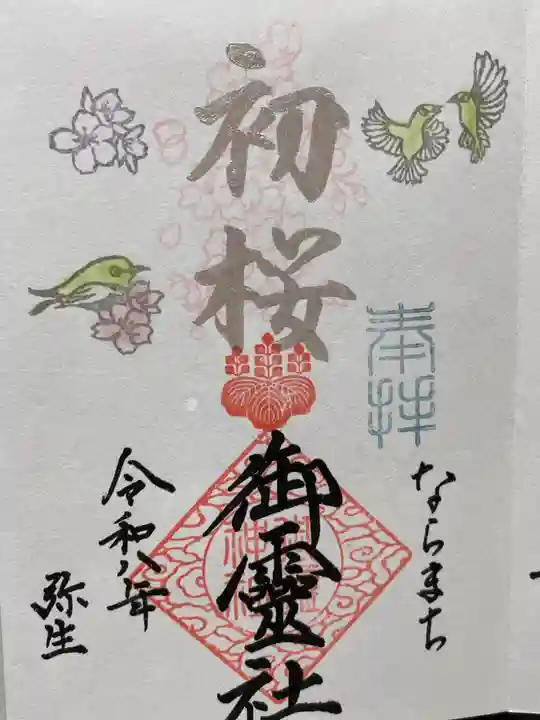 初桜
奉拝
ならまち
御霊社
令和八年
弥生